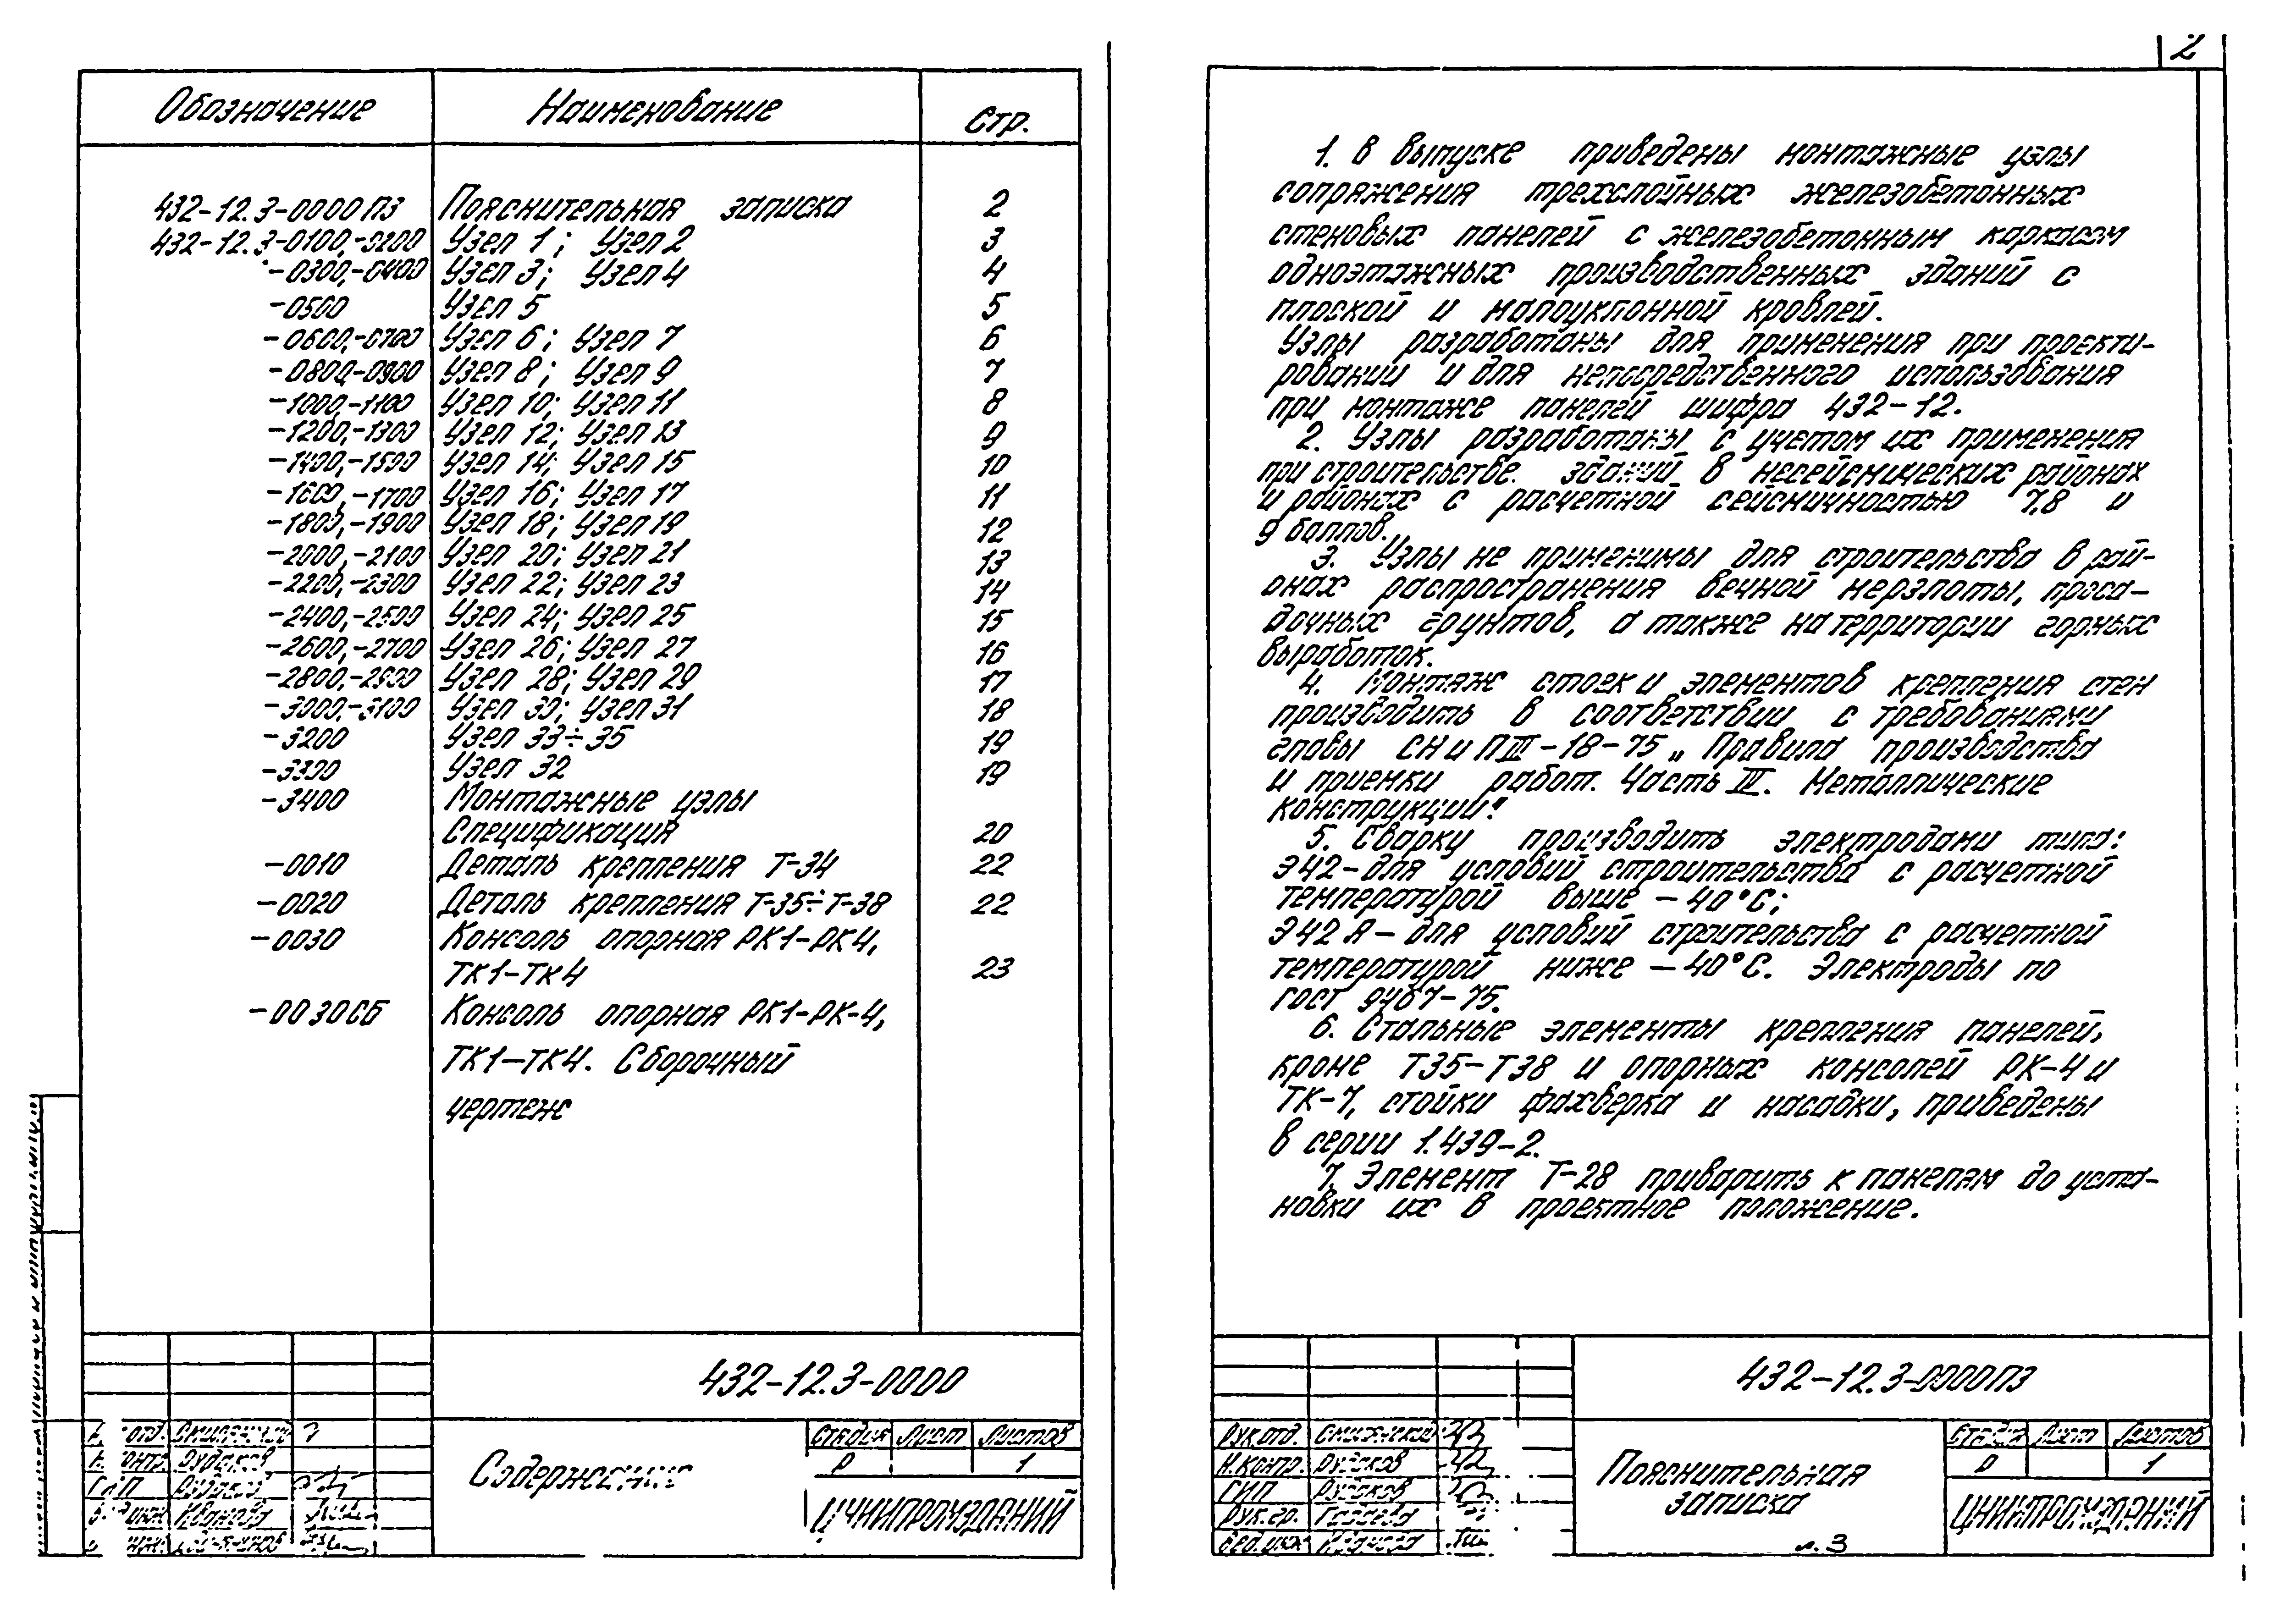 Обозначение Наименование Стр.
432-12.3-0000ПЗ Пояснительная записка 2
432-12.3-0100,-0200 Узел 1; Узел 2 3
-0300,-0400 Узел 3; Узел 4 4
-0500 Узел 5 5
-0600,-0700 Узел 6; Узел 7 6
-0800,-0900 Узел 8; Узел 9 7
-1000,-1100 Узел 10; Узел 11 8
-1200,-1300 Узел 12; Узел 13 9
-1400,-1500 Узел 14; Узел 15 10
-1600,-1700 Узел 16; Узел 17 11
-1800,-1900 Узел 18; Узел 19 12
-2000,-2100 Узел 20; Узел 21 13
-2200,-2300 Узел 22; Узел 23 14
-2400,-2500 Узел 24; Узел 25 15
-2600,-2700 Узел 26; Узел 27 16
-2800,-2900 Узел 28; Узел 29 17
-3000,-3100 Узел 30; Узел 31 18
-3200 Узел 33÷35 19
-3300 Узел 32 19
-3400 Монтажные узлы
Спецификация 20
-0010 Деталь крепления Т-34 22
-0020 Деталь крепления Т-35÷Т-38 22
-0030 Консоль опорная РК1-РК4,
ТК1-ТК4 23
-0030СБ Консоль опорная РК1-РК-4,
ТК1-ТК4. Сборочный
чертеж
432-12.3-0000
Содержание
Стадия Лист Листов
Р 1
ЦНИИПРОМЗДАНИЙ
ГИП Рудаков
Иванова
2
1. В выпуске приведены монтажные узлы
сопряжения трехслойных железобетонных
стеновых панелей с железобетонным каркасом
одноэтажных производственных зданий с
плоской и малоуклонной кровлей.
Узлы разработаны для применения при проекти-
ровании и для непосредственного использования
при монтаже панелей шифра 432-12.
2. Узлы разработаны с учетом их применения
при строительстве. зданий в несейсмических районах
и районах с расчетной сейсмичностью 7,8 и
9 баллов.
3. Узлы не применимы для строительства в рай-
онах распространения вечной мерзлоты, проса-
дочных грунтов, а также на территории горных
выработок.
4. Монтаж стоек и элементов крепления стен
производить в соответствии с требованиями
главы СНиП III-18-75 „Правила производства
и приемки работ. Часть III. Металлические
конструкции".
5. Сварку производить электродами типа:
Э42-для условий строительства с расчетной
температурой выше -40°С;
Э42А-для условий строительства с расчетной
температурой ниже -40°С. Электроды по
ГОСТ 9467-75.
6. Стальные элементы крепления панелей,
кроме Т35-Т38 и опорных консолей РК-4 и
ТК-7, стойки фахверка и насадки, приведены
в серии 1.439-2.
7. Элемент Т-28 приварить к панелям до уста-
новки их в проектное положение.
432-12.3-0000ПЗ
Рук.отд.
Н.контр. Рудаков
ГИП Рудаков
Рук.гр.
Вед.инж. Иванова
Пояснительная
записка
Стадия Лист Листов
Р 1
ЦНИИПРОМЗДАНИЙ
л. 3